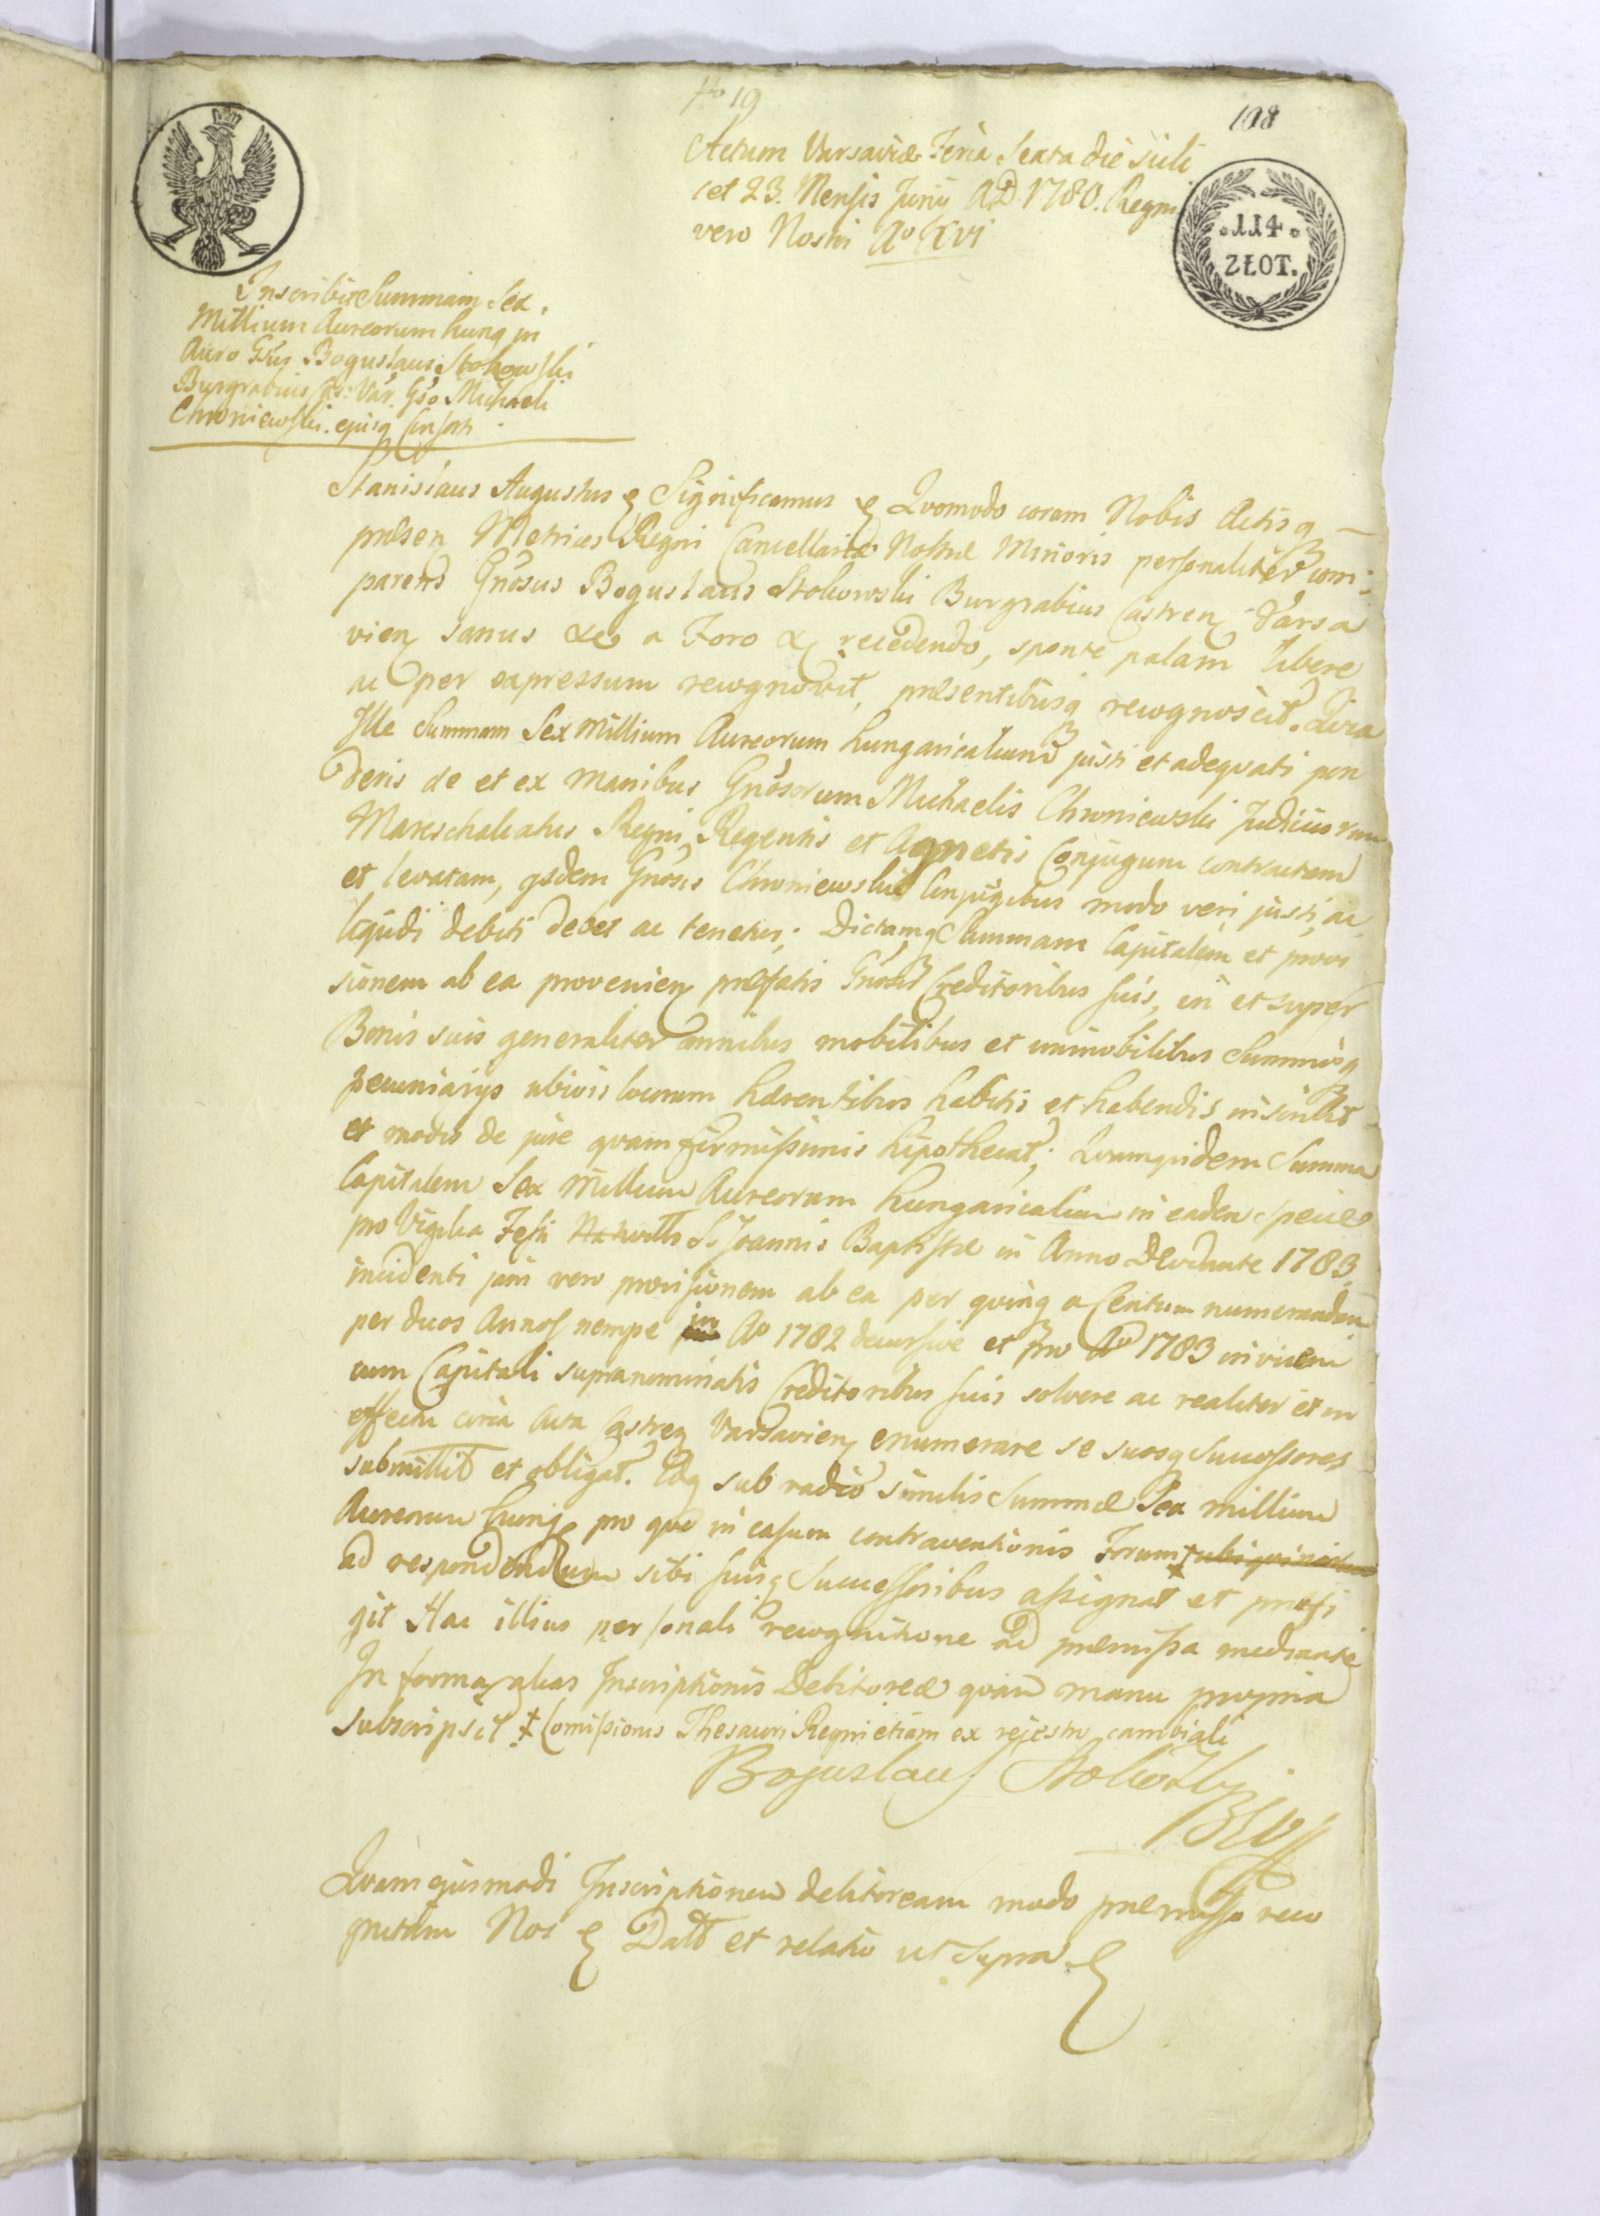 No 19
108
Actum Varsaviæ Feria Sexta die scili
cet 23. Mensis Junij AD 1780. Regni
vero Nostri Ao XVI
114
ZŁOT.
Inscribit Summam Sex
Millium Aureorum hung in
Auro Gsus Boguslaus Stokowski
Burgrabius Cas: Var. Gso Michaeli
Chroniewski. ejusq Consorti
Stanislaus Augustus Significamus Quomodo coram Nobis Actisq
præsen Metrices Regni Cancellariæ Nostræ Minoris personaliter com:
parens Gnosus Boguslaus Stokowski Burgrabius Castren Varsa
vien sanus &c a Foro & recedendo, sponte palam libere
ac per expressum recognovit, præsentibusq recognoscit. Quia
Ille Summam Sex Millium Aureorum hungaricalium justi et adeqvati pon
deris de et ex manibus Gnosorum Michaelis Chroniewski Judiciorum
Mareschalcatus Regni Regentis et Agnetis Conjugum contractam
et levatam, ijsdem Gnosis Chroniewskie Conjugibus modo veri justi, ac
liqvidi debiti debet ac tenetur; Dictamq Summam Capitalem et provi
sionem ab ea provenien præfatis Gnosis Creditoribus suis, in et super
Bonis suis generaliter omnibus mobilibus et immobilibus Summisq
pecuniarijs ubivis locorum hærentibus habitis et habendis inscribit
et modis de jure qvam firmissimis hipothecat; Qvamqvidem Summa
Capitalem Sex Millium Aureorum hungaricalium in eadem specie
pro Vigilia Festi Nativitts S. Joannis Baptistæ in Anno 1783
incidenti jam vero provisionem ab ea per qvinq a Centum numerandam
per duos Annos nempe in Ao 1782 decursive et pro Ao 1783 invicem
cum Capitali supranominatis Creditoribus suis solvere ac realiter et in
effectu circa Acta Castren Varsavien enumerare se suosq Successores
submittit et obligat. Idq sub vadio similis Summæ Sex millium
Aureorum hung pro quo in casum contraventionis Forum ‡
ad respondendum sibi suisq Successoribus assignat et præfi
git Hac illius personali recognitione ad præmissa mediante
In forma alias Inscriptionis Debitoreæ qvam manu propria
subscripsit ‡ Comissionis Thesauri Regni etiam ex rejestro cambiali
Boguslaus Stokowski
BCW
Qvam ejusmodi Inscriptionem debitoream modo præmisso reco
gnitam Nos Datt et relatio ut supra